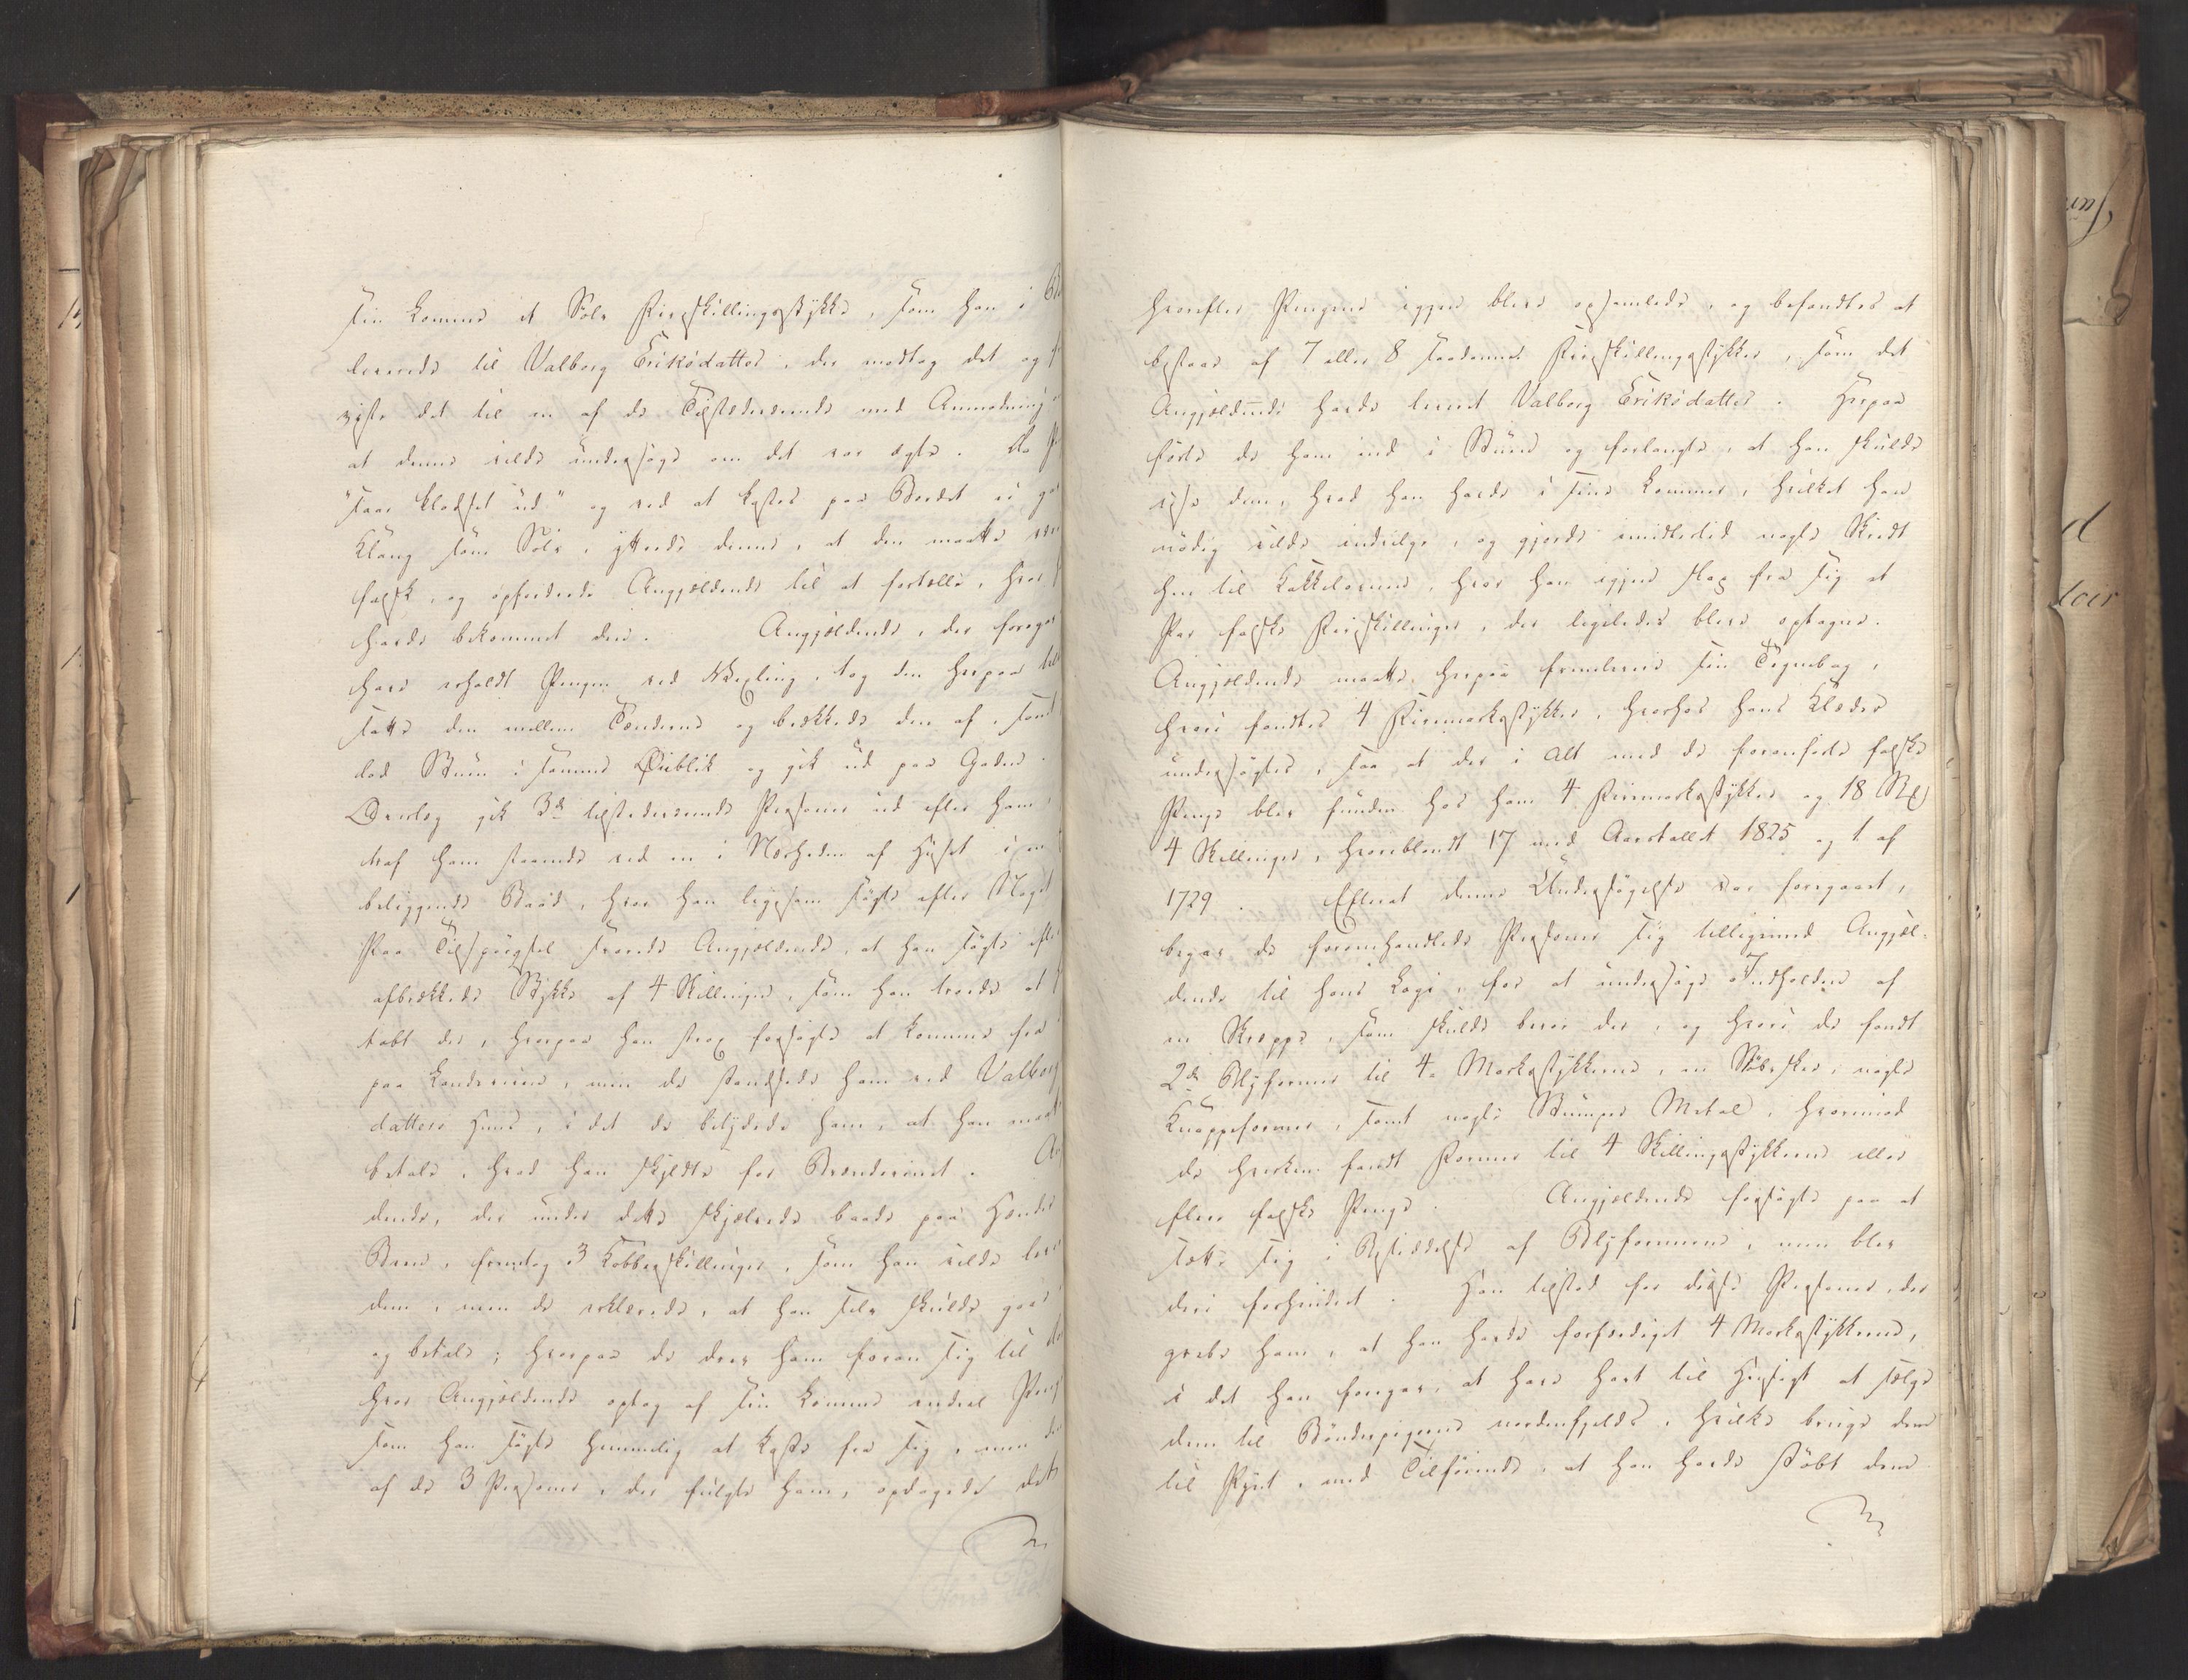 sin Lomme et Sølv Fireskillingsstykke, som han i
leverede til Valborg Eriksdatter, der modtog det og
viste det til en af de Tilstedeværende med Anmodning
at denne vilde undersøge om det var ægte. Da
"saae bladset ud" og ved at kastes paa Bordet ei
Klang som Sølv, yttrede denne, at den maatte være
falsk, og opfordrede Angjældende til at fortælle, hvor
havde bekommet den. Angjældende, der foregav
have erholdt Pengen ved Vexling, tog den herpaa
satte den mellem Tænderne og brækkede den af,
lod Stuen i samme Øieblik og gik ud paa Gaden.
Derefter gik 3de tilstedeværende Personer ud efter ham,
traf ham staaende ved en i Nærheden af Huset
beliggende Baad, hvor han ligesom søgte efter Noget
Paa Tilspørgsel svarede Angjældende, at han søgte efter
afbrækkede Stykke af 4 Skillingen, som han troede at
tabt der, hvorpaa han strax forsøgte at komme fra
paa Landeveien, men de standsede ham ved Valborg
datters Huus, i det de betydede ham, at han maatte
betale, hvad han skyldte for Brændeviinet.
dende, der under dette skjælvede baade paa Hænder
Been, fremtog 3 Kobberskillinger, som han vilde levere
dem, men de erklærede, at han selv skulde gaae
og betale; hvorpaa de drev ham foran sig til
hvor Angjældende optog af sin Lomme endeel Penge
som han søgte hemmelig at kaste fra sig, men
af de 3 Personer, der fulgte ham, opdagede dette
hvorefter Pengene igjen bleve opsamlede, og befandtes at
bestaae af 7 eller 8 saadanne Fireskillingsstykker, som det
Angjældende havde leveret Valborg Eriksdatter. Herpaa
førte de ham ind i Stuen og forlangte, at han skulde
vise dem, hvad han havde i sine Lommer, hvilket han
nødig vilde indvilge, og gjorde imidlertid nogle Skridt
hen til Kakkelovnen, hvor han igjen slap fra sig et
Par falske Fireskillinger, der ligeledes bleve optagne.
Angjældende maatte herpaa fremlevere sin Tegnebog,
hvori fandtes 4 Firemarkstykker, hvorhos hans Klæder
undersøgtes, saa at der i alt med de foranførte falske
Penge blev funden hos ham 4 Firemarkstykker og 18 Stk
4 Skillinger, hvoriblandt 17 med Aarstallet 1825 og 1 af
1729. Efterat denne Undersøgelse var foregaaet,
begav de foromhandlede Personer sig tilligemed Angjæl-
dende til hans Logi, for at undersøge Indholden af
en Skreppe, som skulde være der, og hvori de fandt
2de Blyformer til 4 Markstykkerne, en Støbeskee, nogle
Knappeformer, samt nogle Stumper Metal, hvorimod
de hverken fandt Former til 4 Skillingsstykkerne eller
flere falske Penge. Angjældende forsøgte paa at
sætte sig i Besiddelse af Blyformerne, men blev
deri forhindret. Han tilstod for disse Personer, der
greb ham, at han havde forfærdiget 4 Markstykkerne,
i det han foregav, at have havt til Hensigt at sælge
dem til Bønderpigerne nordenfjelds, hvilke bruge dem
til Pynt, med Tilføiende, at han havde støbt dem